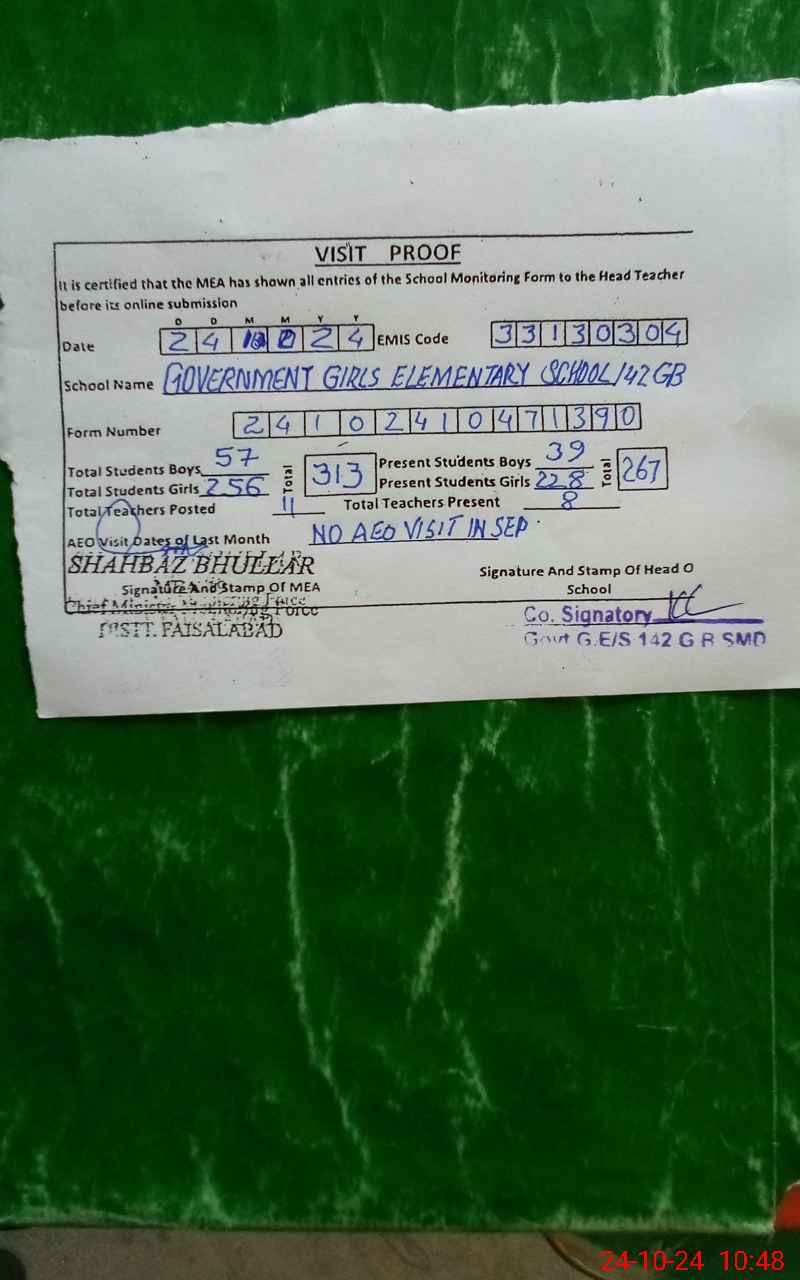 VISIT PROOF
It is certified that the MEA has shown all entries of the School Monitoring Form to the Head Teacher
before its online submission
D D M M Y Y
Date 24 10 24 EMIS Code 33130304
School Name GOVERNMENT GIRLS ELEMENTARY SCHOOL/142 GB
Form Number 24102410471390
Total Students Boys 57 Total 313 Present Students Boys 39 Total 267
Total Students Girls 256 Present Students Girls 228
Total Teachers Posted 11 Total Teachers Present 8
AEO Visit Dates of Last Month NO AEO VISIT IN SEP.
SHAHBAZ BHULLAR
Signature And Stamp Of MEA
Signature And Stamp Of Head O
School
Chief Minister Monitoring Force
DISTT. FAISALABAD
Co. Signatory
Govt G.E/S 142 G B SMD
24-10-24 10:48